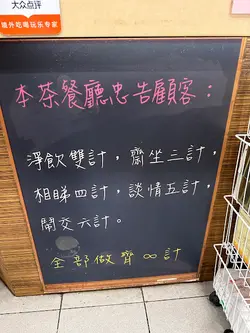 大众点评
屋外吃喝玩乐专家
本茶餐廳忠告顧客：
淨飲雙計，齋坐三計，
相睇四計，談情五計，
鬧交六計。
全部做齊∞計